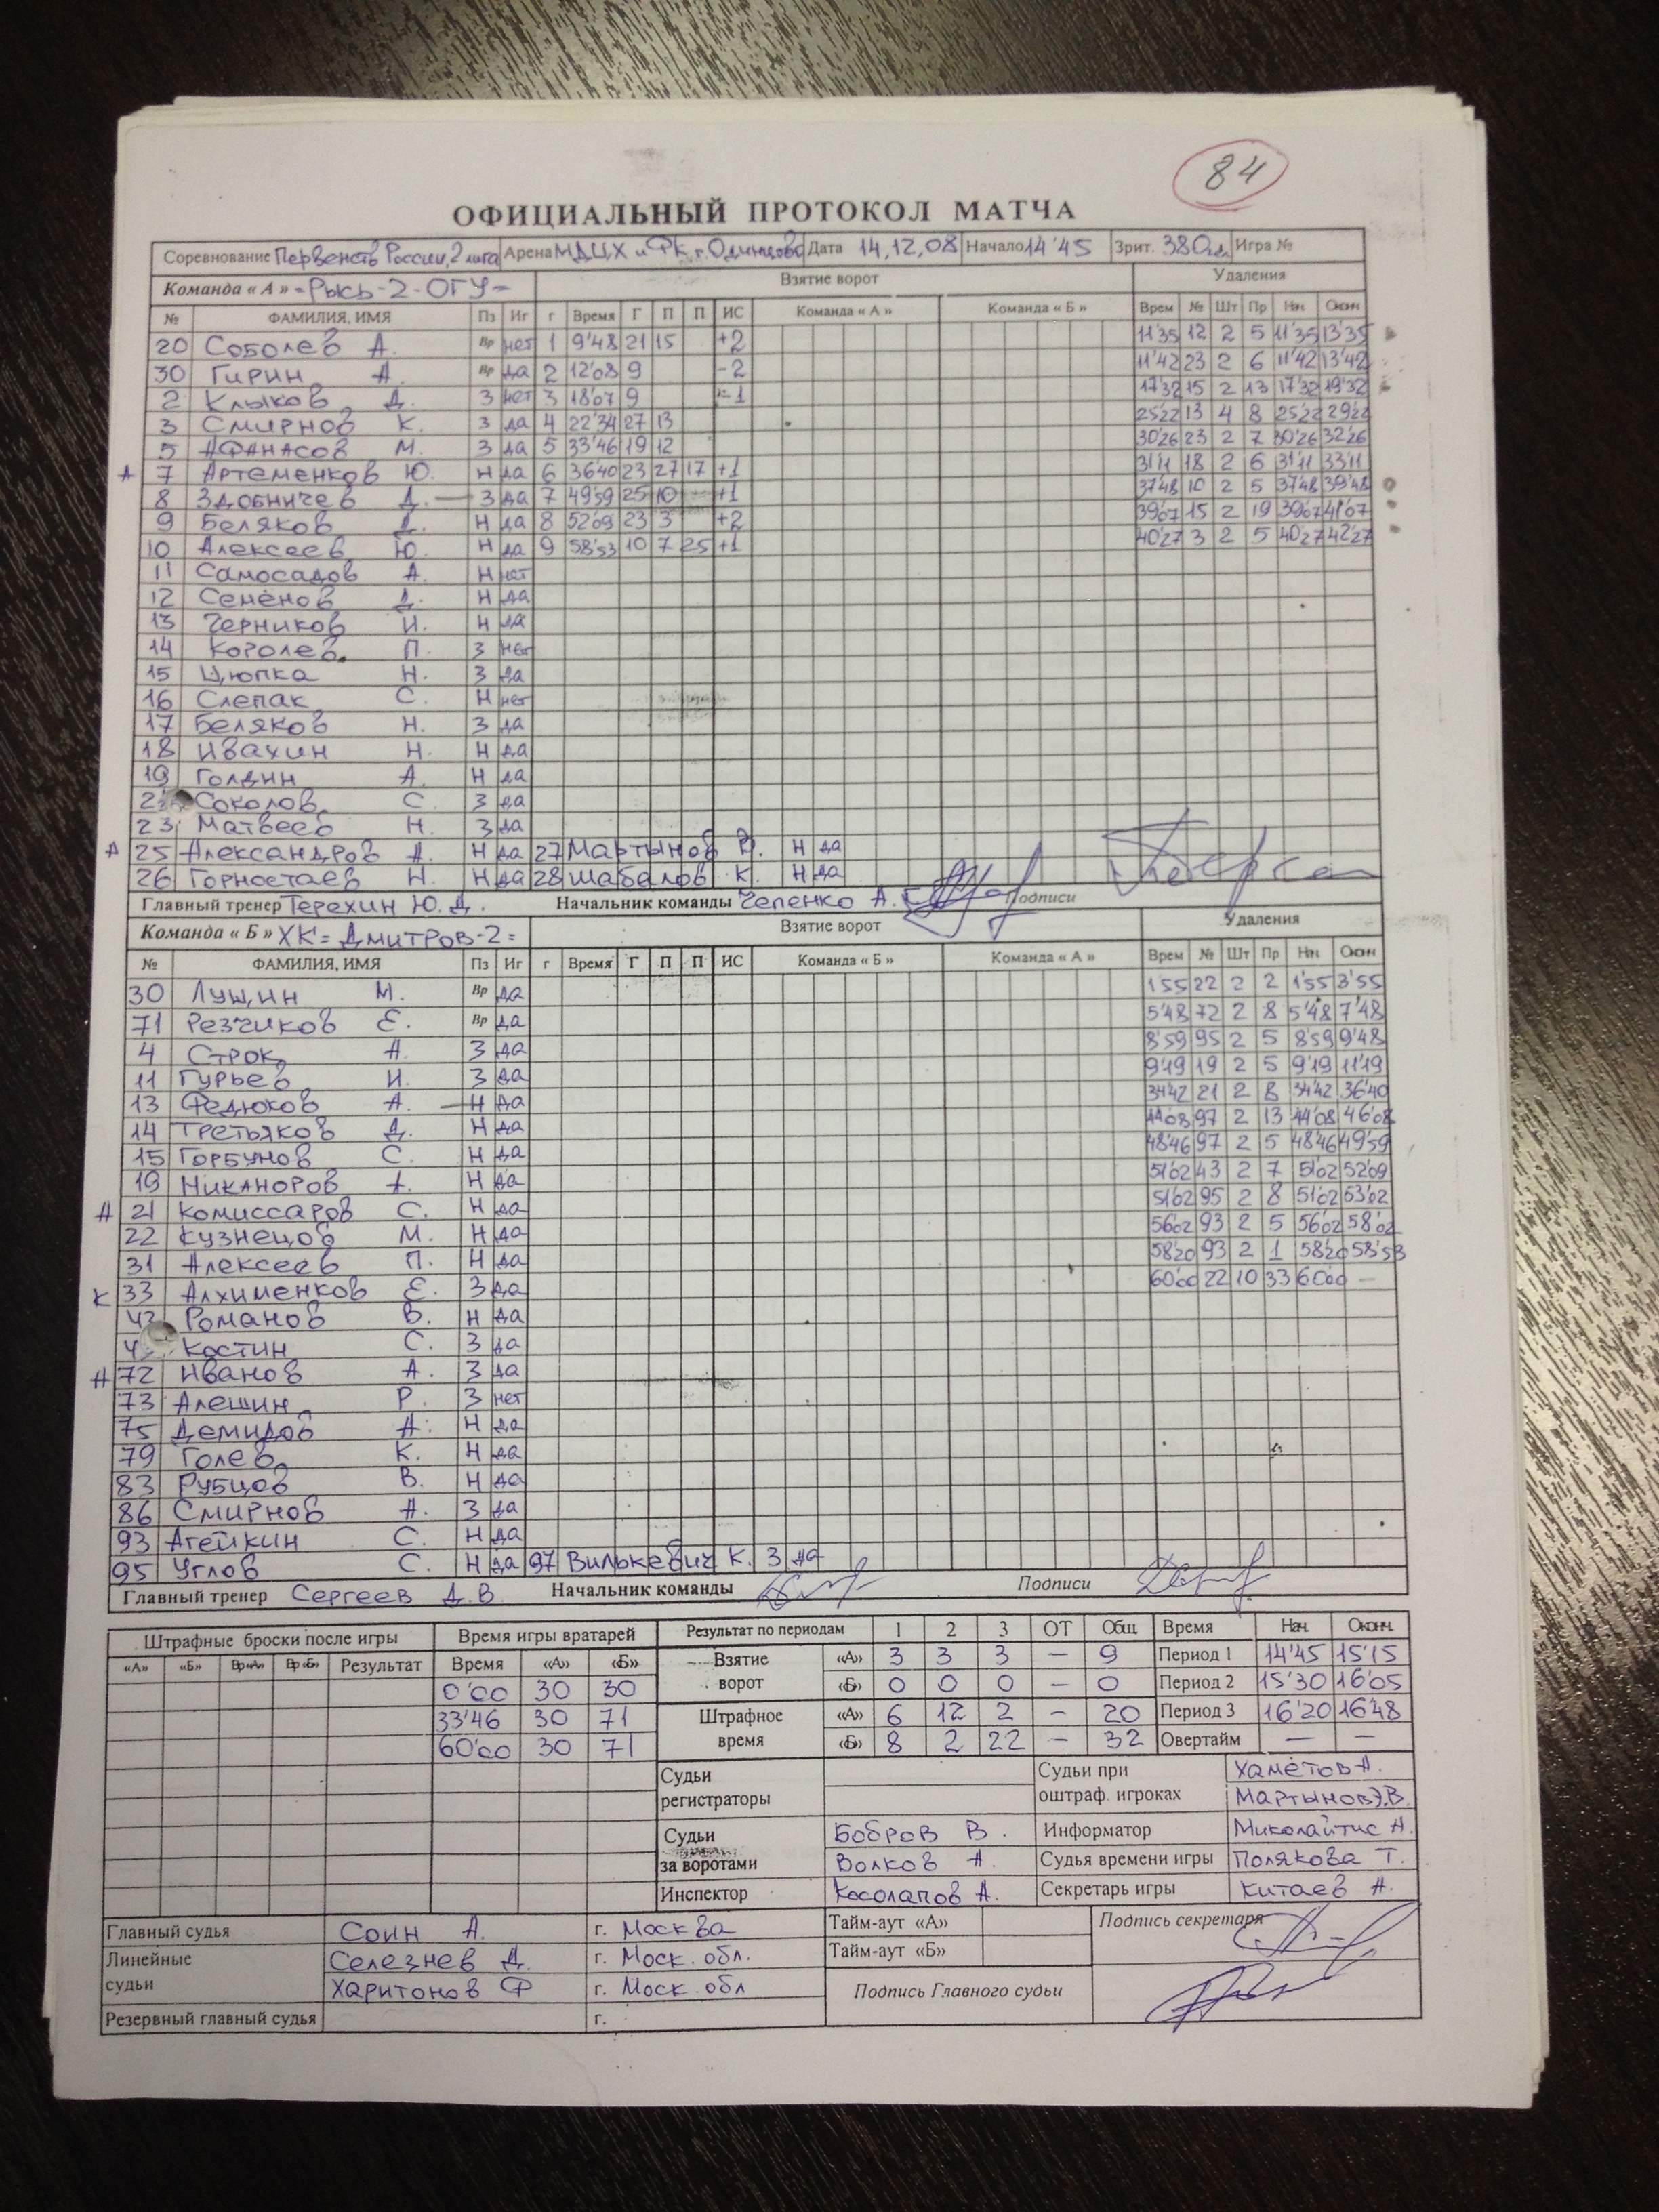 84
ОФИЦИАЛЬНЫЙ ПРОТОКОЛ МАТЧА
Соревнование Первенств России, 2 лига Арена МДЦХ и ФК, г. Одинцово Дата 14,12,08 Начало 14'45 Зрит. 380 Игра №
Команда « А » =Рысь-2-ОГУ= Взятие ворот Удаления
№ ФАМИЛИЯ, ИМЯ Пз Иг г Время Г П П ИС Команда « А » Команда « Б » Врем № Шт Пр Нач Оконч
20 Соболев А. Вр нет 1 9'48 21 15 +2 11'35 12 2 5 11'35 13'35
30 Гирин А. Вр да 2 12'08 9 -2 11'42 23 2 6 11'42 13'42
2 Клыков Д. З нет 3 18'07 9 -1 17'32 15 2 13 17'32 19'32
3 Смирнов К. З да 4 22'34 27 13 25'22 13 4 8 25'22 29'22
5 Афанасов М. З да 5 33'46 19 12 30'26 23 2 7 30'26 32'26
А 7 Артеменков Ю. Н да 6 36'40 23 27 17 +1 31'11 18 2 6 31'11 33'11
8 Здобничев Д. З да 7 49'59 25 10 +1 37'48 10 2 5 37'48 39'48
9 Беляков Д. Н да 8 52'09 23 3 +2 39'07 15 2 19 39'07 41'07
10 Алексеев Ю. Н да 9 58'53 10 7 25 +1 40'27 3 2 5 40'27 42'27
11 Самосадов А. Н нет
12 Семёнов Д. Н да
13 Черников И. Н да
14 Королев П. З нет
15 Цюпка Н. З да
16 Слепак С. Н нет
17 Беляков Н. З да
18 Ивахин Н. Н да
19 Голдин А. Н да
Соколов С. З да
23 Матвеев Н. З да
А 25 Александров А. Н да 27 Мартынов В. Н да
26 Горностаев Н. Н да 28 Шабалов К. Н да
Главный тренер Терехин Ю. Д. Начальник команды Чепенко А. Г. Подписи
Команда « Б » ХК =Дмитров-2= Взятие ворот Удаления
№ ФАМИЛИЯ, ИМЯ Пз Иг г Время Г П П ИС Команда « Б » Команда « А » Врем № Шт Пр Нач Оконч
30 Лушин М. Вр да 1'55 22 2 2 1'55 3'55
71 Резчиков Е. Вр да 5'48 72 2 8 5'48 7'48
4 Строк А. З да 8'59 95 2 5 8'59 9'48
11 Гурьев И. З да 9'19 19 2 5 9'19 11'19
13 Федюков А. Н да 34'42 21 2 8 34'42 36'40
14 Третьяков Д. Н да 44'08 97 2 13 44'08 46'08
15 Горбунов С. Н да 48'46 97 2 5 48'46 49'59
19 Никаноров А. Н да 51'02 43 2 7 51'02 52'09
А 21 Комиссаров С. Н да 51'02 95 2 8 51'02 53'02
22 Кузнецов М. Н да 56'02 93 2 5 56'02 58'02
31 Алексеев П. Н да 58'20 93 2 1 58'20 58'53
К 33 Алхименков Е. З да 60'00 22 10 33 60'00 —
43 Романов В. Н да
Костин С. З да
А 72 Иванов А. З да
73 Алешин Р. З нет
75 Демидов А. Н да
79 Голев К. Н да
83 Рубцов В. Н да
86 Смирнов А. З да
93 Агейкин С. Н да
95 Углов С. Н да 97 Вилькевич К. З да
Главный тренер Сергеев Д. В. Начальник команды Подписи
Штрафные броски после игры Время игры вратарей Результат по периодам 1 2 3 ОТ Общ Время Нач. Оконч.
«А» «Б» Вр«А» Вр«Б» Результат Время «А» «Б» Взятие ворот «А» 3 3 3 — 9 Период 1 14'45 15'15
0'00 30 30 «Б» 0 0 0 — 0 Период 2 15'30 16'05
33'46 30 71 Штрафное время «А» 6 12 2 — 20 Период 3 16'20 16'48
60'00 30 71 «Б» 8 2 22 — 32 Овертайм — —
Судьи регистраторы Судьи при оштраф. игроках Хамётов А.
Мартынов Э.В.
Судьи за воротами Бобров В. Информатор Миколайтис А.
Волков А. Судья времени игры Полякова Т.
Инспектор Косолапов А. Секретарь игры Китаев А.
Главный судья Соин А. г. Москва Тайм-аут «А» Подпись секретаря
Линейные судьи Селезнев Д. г. Моск. обл. Тайм-аут «Б»
Харитонов Ф г. Моск. обл Подпись Главного судьи
Резервный главный судья г.